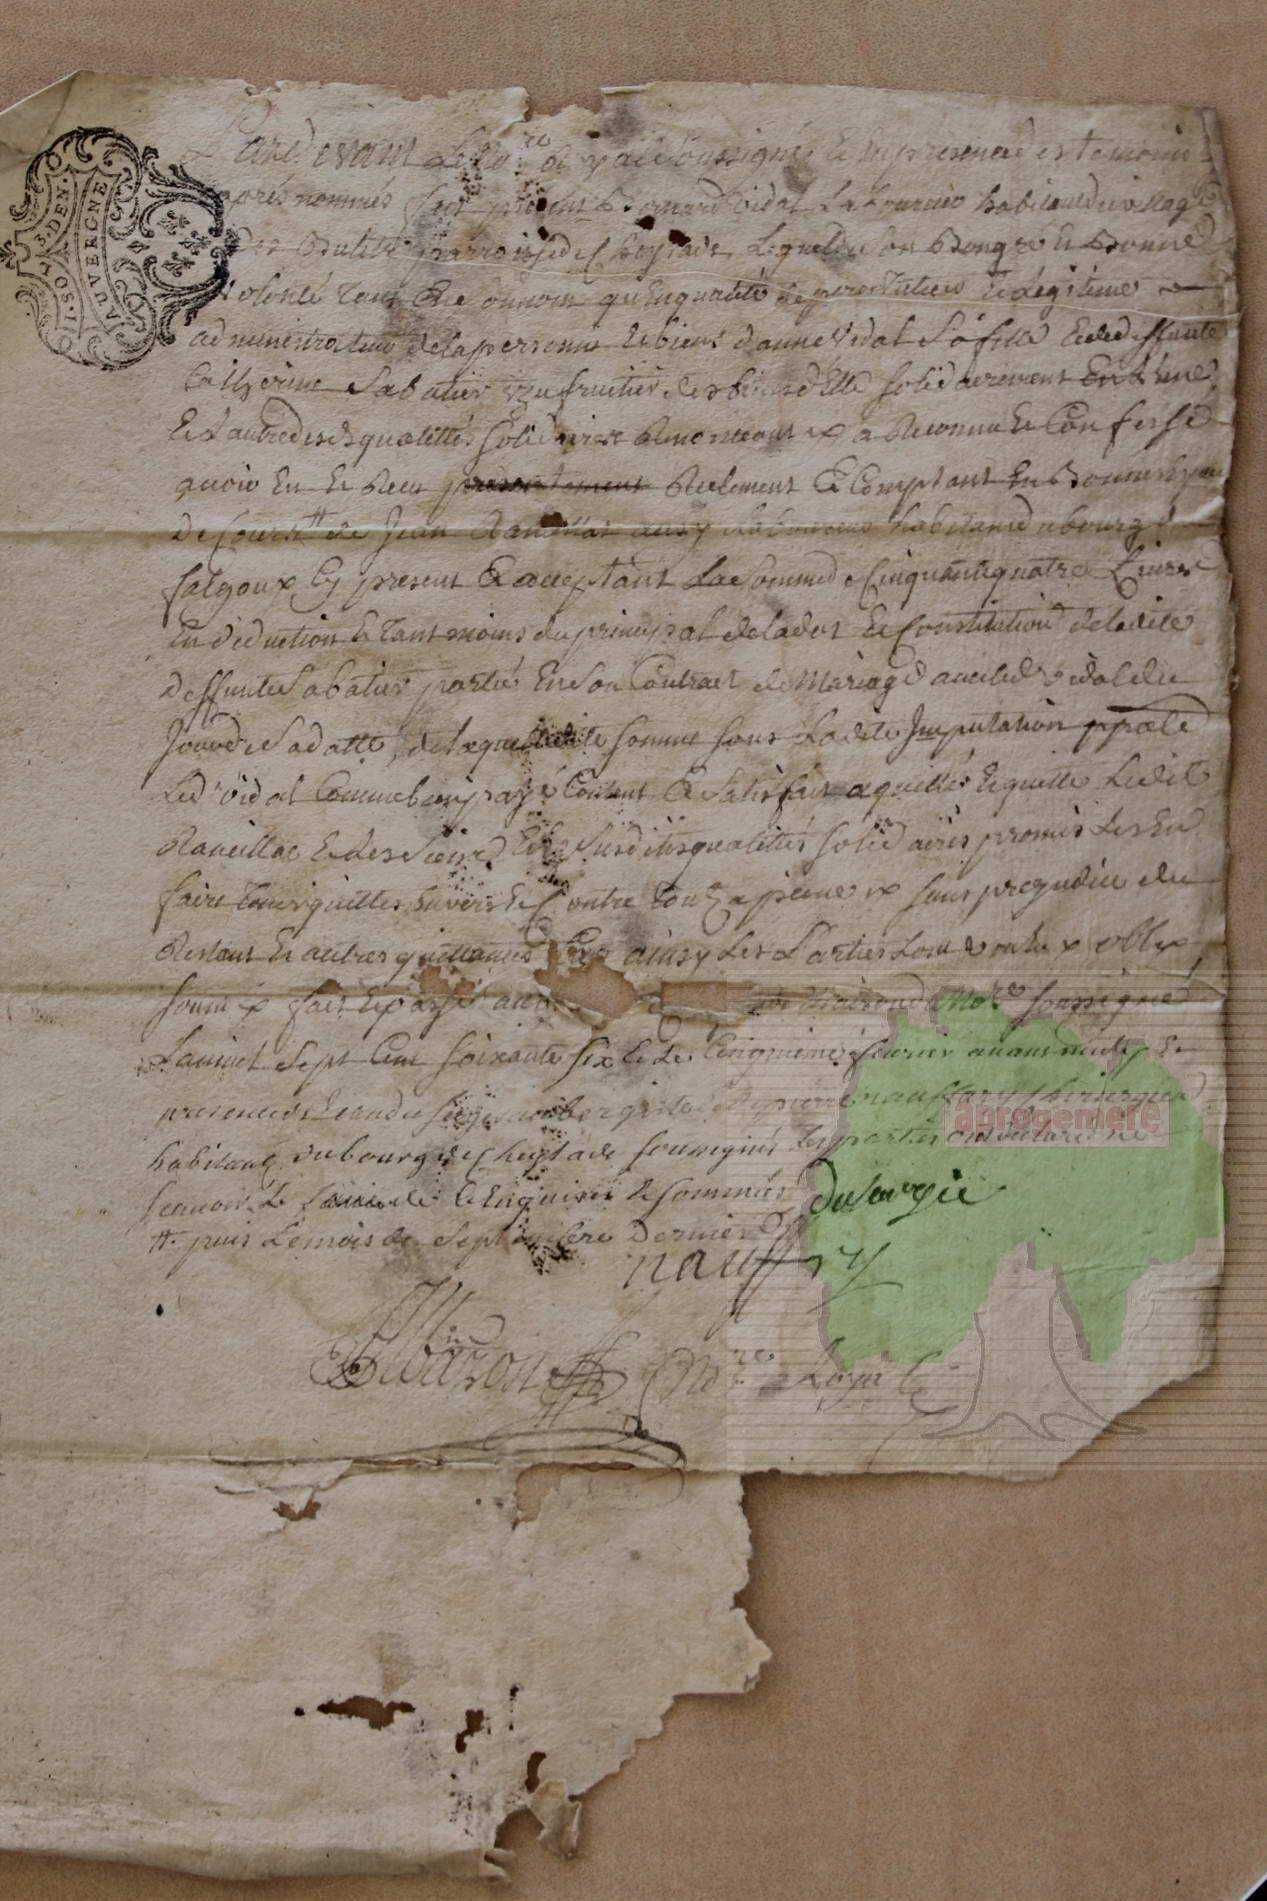 I. SOL. 3. DEN.
AUVERGNE
Pardevant le Nore Royal soussigné Et En presence des temoins
apres nommés fut present Bernard vidal Laboureur habitant du village
parroisse de Cheylade, Lequel de son Bon gré Et Bonne
volonté Tant En son nom qu'En qualité de pere Tuteur Et légitime
administrateur de la personne Et biens d'anne vidal Sa fille Et de deffunte
Catherine Sabatier uzufruitier des biens d'Elle solidairement En L'une
Et L'autre desd qualittés solidaires Renonceant x a Reconnu Et Confessé
avoir Eu Et Receu presentement Reelement Et Comptant En Bonnes
de Cours tt de Jean Raveillac aussy Laboureur habitant du bourg de
falgoux Cy present Et acceptant La Somme de Cinquante quatre Livres
En deduction Et Tant moins du principal de la dot Et Constitution de ladite
deffunte Sabatier portée En son Contract de Mariage avec led vidal du
Jour de Sa datte, de laquelle dite somme sous Ladite Imputation
Led vidal Comme bien payé Content Et Satisfait a quitté Et quitte Ledit
Raveillac Et Les Siens Et Es Susdites qualittés solidaires promis Les En
faire Tenir quittes Envers Et Contre tous a peine x sans prejudice du
Restant Et autres quittances Car ainsy Les Parties L'ont voulu x obl x
soum x fait Et passé au Maison du Nore soussigné
L'an mil Sept Cent Soixante Six Et Le Cinquieme fevrier avant midy En
presence de aubergiste Et de pierre nauffary Chirurgien
habitants du bourg de Cheylade soussignés Les parties ont declaré ne
scavoir Le faire de Ce Enquises Et sommées
tt puis Le mois de Septembre Dernier
nauffary
Nore Royal
aprogemere